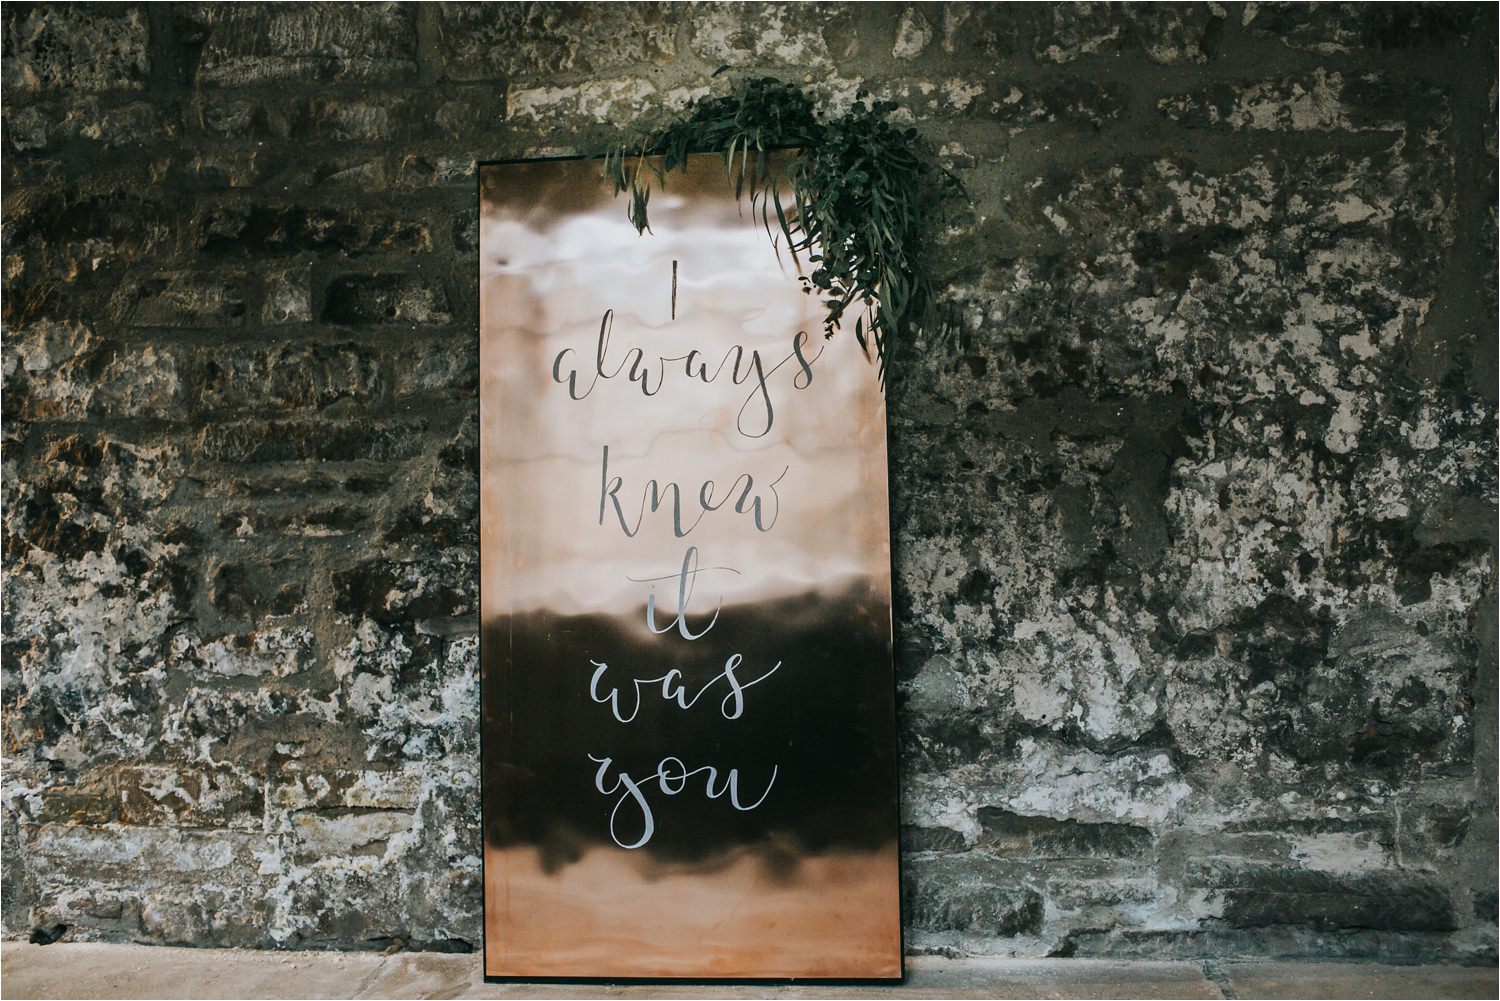 I
always
knew
it
was
you